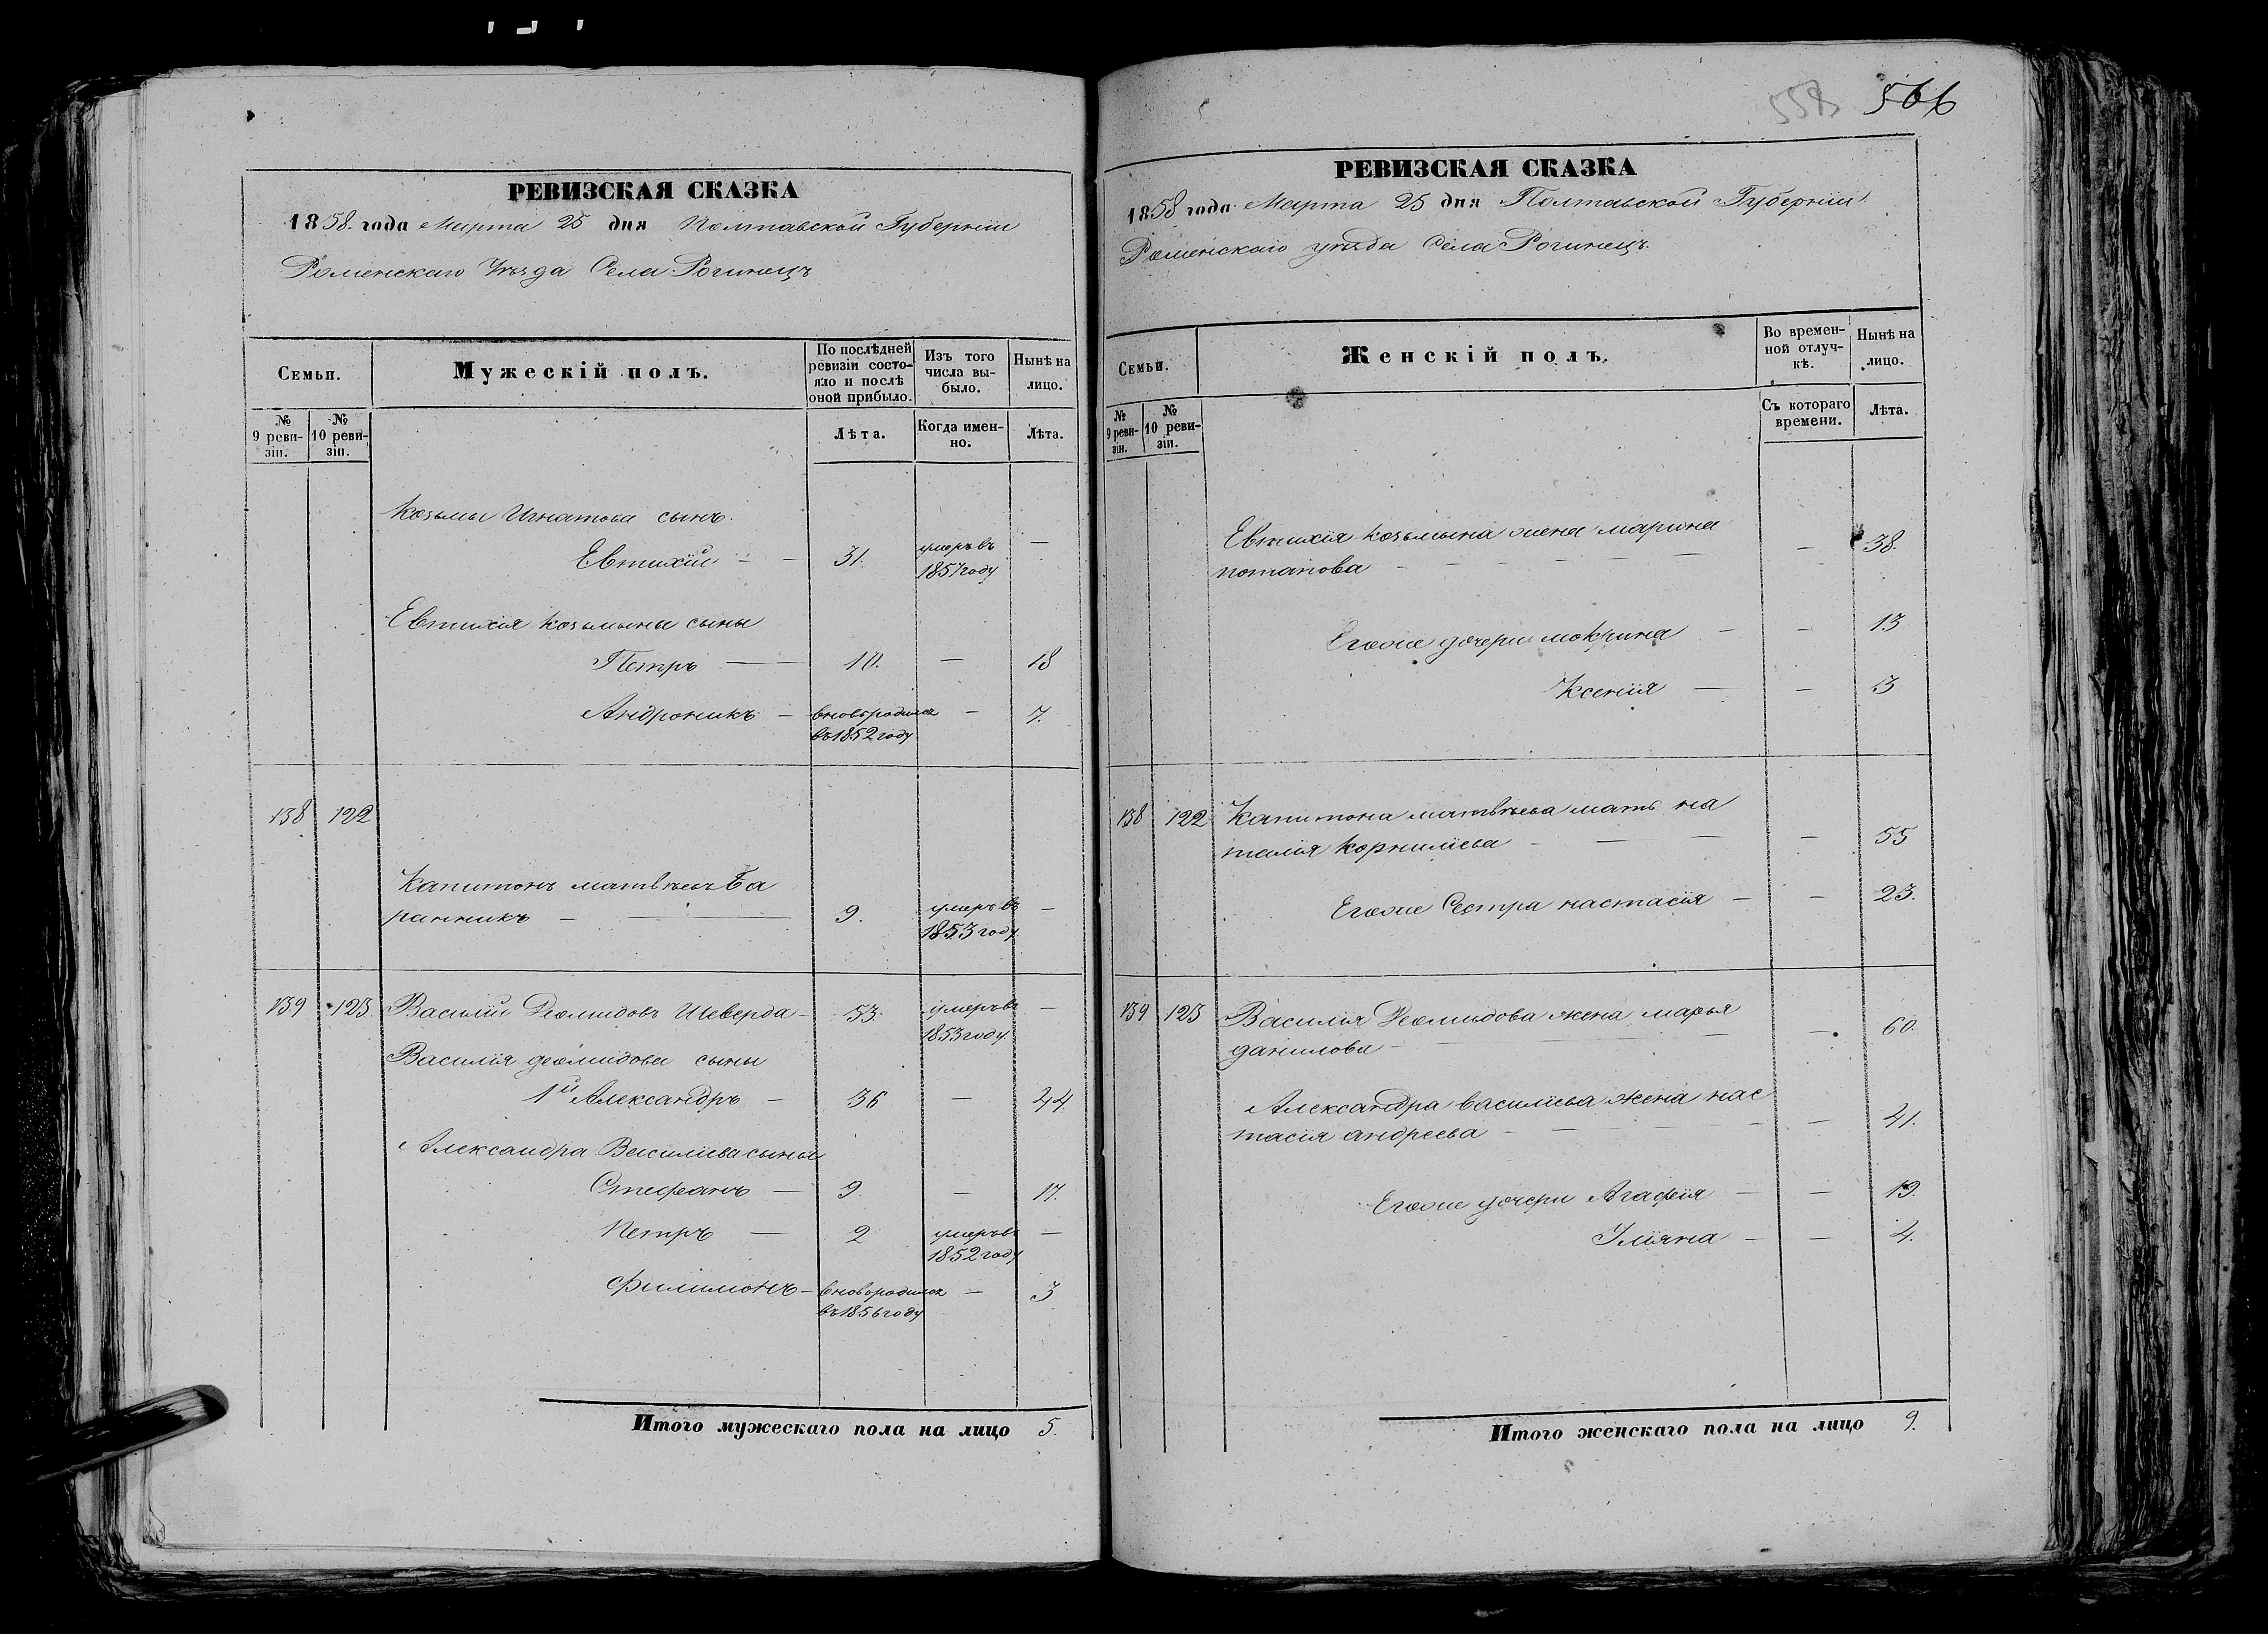 РЕВИЗСКАЯ СКАЗКА
1858 года Марта 25 дня Полтавской Губернiи
Роменскаго Уѣзда Села Рогинецъ
Семьи.
Мужескій полъ.
По послѣдней
ревизіи состо-
яло и послѣ
оной прибыло.
Изъ того
числа вы-
было.
Нынѣ на
лицо.
№
9 реви-
зіи.
№
10 реви-
зіи.
Лѣта.
Когда имен-
но.
Лѣта.
Козьмы Игнатова сынъ
Евтихій — 31. умеръ въ —
1857 году
Евтихія Козьмына сыны
Петръ — 10. — 18
Андроникъ — вновьродился — 7.
въ 1852 году
138 122
Капитонъ матвѣевъ Ба
ранникъ — 9. умеръ въ —
1853 году
139 123. Василій Деомидовъ Шеверда — 53. умеръ въ —
1853 году.
Василія деомидова сыны
1й Александръ — 36 — 44.
Александра Василіева сыны
Стефанъ — 9. — 17.
Петръ — 2 умеръ въ —
1852 году
Филимонъ — вновьродился — 3
въ 1856 году
Итого мужескаго пола на лицо 5.
558 566
РЕВИЗСКАЯ СКАЗКА
1858 года Марта 25 дня Полтавской Губернiи
Роменскаго уѣзда Села Рогинецъ.
Семьи.
Женскій полъ.
Во времен-
ной отлуч-
кѣ.
Нынѣ на
лицо.
№
9 реви-
зіи.
№
10 реви-
зіи.
Съ котораго
времени.
Лѣта.
Евтихія козьмына жена марина
потапова — — 38.
Егоже дочери мокрина — — 13
Ксенія — — 3
138 122 Капитона матвѣева мать на
талія Корнилiева — — 55
Егоже Сестра настасія — — 23.
139 123 Василія Деомидова жена марья
данилова — — 60.
Александра василіева жена нас
тасія андреева — — 41.
Егоже дочери Агафія — — 19.
Уліяна — — 4.
Итого женскаго пола на лицо 9.